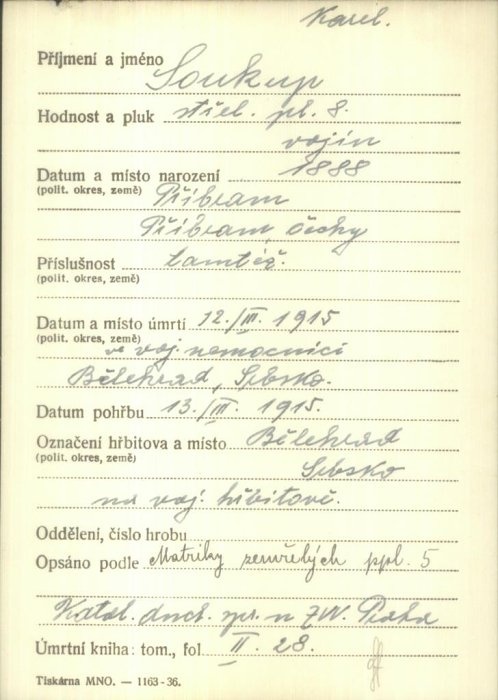 Karel.
Příjmení a jméno Soukup
Hodnost a pluk střel. pl. 8.
vojín
Datum a místo narození 1888
(polit. okres, země) Příbram
Příbram, Čechy
Příslušnost tamtéž.
(polit. okres, země)
Datum a místo úmrtí 12./III. 1915
(polit. okres, země) ve voj. nemocnici
Bělehrad, Srbsko.
Datum pohřbu 13./III. 1915.
Označení hřbitova a místo Bělehrad
(polit. okres, země) Srbsko
na voj. hřbitově.
Oddělení, číslo hrobu
Opsáno podle Matriky zemřelých ppl. 5
Katol. duch. spr. u ZVV. Praha
Úmrtní kniha: tom., fol II. 28.
Tiskárna MNO. — 1163-36.